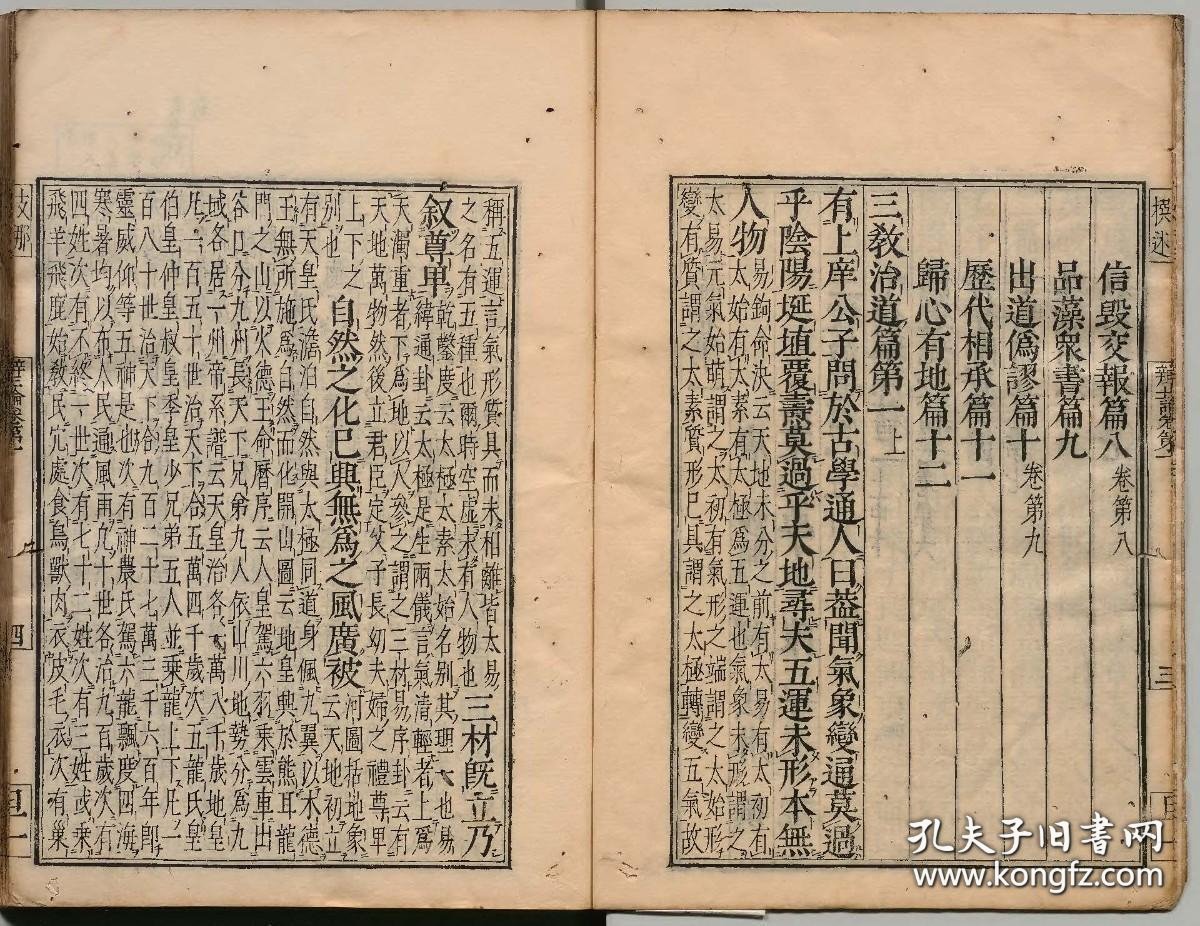 信毀交報篇八 卷第八
品藻衆書篇九
出道僞謬篇十 卷第九
歷代相承篇十一
歸心有地篇十二
三教治道篇第一上
有上庠公子問於古學通人曰蓋聞氣象變通莫過
乎陰陽埏埴覆燾莫過乎天地尋夫五運未形本無
人物 易鉤命決云天地未分之前有太易有太初有
有太始有太素有太極爲五運也氣象未形謂之
太易元氣始萌謂之太初有氣形之端謂之太始形
變有質謂之太素質形已具謂之太極轉變五氣故
稱五運言氣形質具而未相離皆太易
之名有五種也爾時空虛未有人物也 三材既立乃
叙尊卑 乾鑿度云太極太素太始名別其理一也易
緯通卦云太極是生兩儀言氣清輕者上爲
天濁重者下爲地以人參之謂之三材易序卦云有
天地萬物然後立君臣定父子長幼夫婦之禮尊卑
上下之
別也 自然之化已興無爲之風廣被 河圖括地象
云天地初立
有天皇氏澹泊自然與太極同道身佩九翼以木德
王無所施爲自然而化開山圖云地皇興於熊耳龍
門之山以火德王命曆序云人皇駕六羽乘雲車出
谷口分九州長天下兄弟九人依山川地勢分爲九
域各居一州帝系譜云天皇治各一萬八千歲地皇
伯皇仲皇叔皇季皇少兄弟五人並乘龍上下凡一
百八十世治天下合九百二十七萬三千六百年卽
靈威仰等五神是也次有神農氏駕六龍飄度四海
寒暑均以布人民通風雨九十世各治九百歲次有
四姓次有不終一世次有七十二姓次有三姓或乘
飛羊飛鹿始教民穴處食鳥獸肉衣皮毛衣次有巢
支那
撰述
四
三
孔夫子旧书网
www.kongfz.com